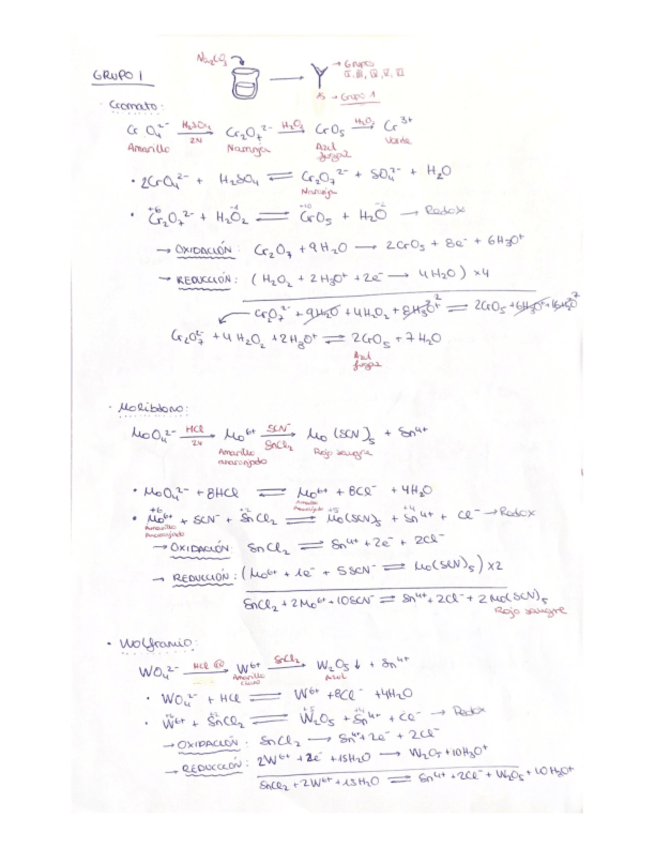 GRUPO 1
Na₂CO₃
→ Grupo
II, III, IV, V, VI
→ Grupo 1
· Cromato:
CrO₄²⁻ H₂SO₄ 2N → Cr₂O₇²⁻ H₂O₂ → CrO₅ H₂O₂ → Cr³⁺
Amarillo Naranja Azul fugaz Verde
· 2CrO₄²⁻ + H₂SO₄ ⇌ Cr₂O₇²⁻ + SO₄²⁻ + H₂O
Naranja
+6 -1 +10 -2
· Cr₂O₇²⁻ + H₂O₂ ⇌ CrO₅ + H₂O → Redox
→ OXIDACIÓN: Cr₂O₇ + 9H₂O → 2CrO₅ + 8e⁻ + 6H₃O⁺
→ REDUCCIÓN: (H₂O₂ + 2H₃O⁺ + 2e⁻ → 4H₂O) x4
Cr₂O₇²⁻ + 9H₂O + 4H₂O₂ + 8H₃O⁺ ² ⇌ 2CrO₅ + 6H₃O⁺ + 16H₂O ⁷
Cr₂O₇²⁻ + 4H₂O₂ + 2H₃O⁺ ⇌ 2CrO₅ + 7H₂O
Azul fugaz
· Molibdeno:
MoO₄²⁻ HCl 2N → Mo⁶⁺ SCN⁻ SnCl₂ → Mo(SCN)₅ + Sn⁴⁺
Amarillo anaranjado Rojo sangre
· MoO₄²⁻ + 8HCl ⇌ Mo⁶⁺ + 8Cl⁻ + 4H₂O
Amarillo Anaranjado
+6 +2 +5 +4
· Mo⁶⁺ + SCN⁻ + SnCl₂ ⇌ Mo(SCN)₅ + Sn⁴⁺ + Cl⁻ → Redox
Amarillo Anaranjado
→ OXIDACIÓN: SnCl₂ ⇌ Sn⁴⁺ + 2e⁻ + 2Cl⁻
→ REDUCCIÓN: (Mo⁶⁺ + 1e⁻ + 5SCN⁻ ⇌ Mo(SCN)₅) x2
SnCl₂ + 2Mo⁶⁺ + 10SCN⁻ ⇌ Sn⁴⁺ + 2Cl⁻ + 2Mo(SCN)₅
Rojo sangre
· Wolframio:
WO₄²⁻ HCl → W⁶⁺ SnCl₂ → W₂O₅↓ + Sn⁴⁺
Amarillo Azul
· WO₄²⁻ + HCl ⇌ W⁶⁺ + 8Cl⁻ + 4H₂O
+6 +2 +5 +4
· W⁶⁺ + SnCl₂ ⇌ W₂O₅ + Sn⁴⁺ + Cl⁻ → Redox
→ OXIDACIÓN: SnCl₂ → Sn⁴⁺ + 2e⁻ + 2Cl⁻
→ REDUCCIÓN: 2W⁶⁺ + 2e⁻ + 15H₂O → W₂O₅ + 10H₃O⁺
SnCl₂ + 2W⁶⁺ + 15H₂O ⇌ Sn⁴⁺ + 2Cl⁻ + W₂O₅ + 10H₃O⁺